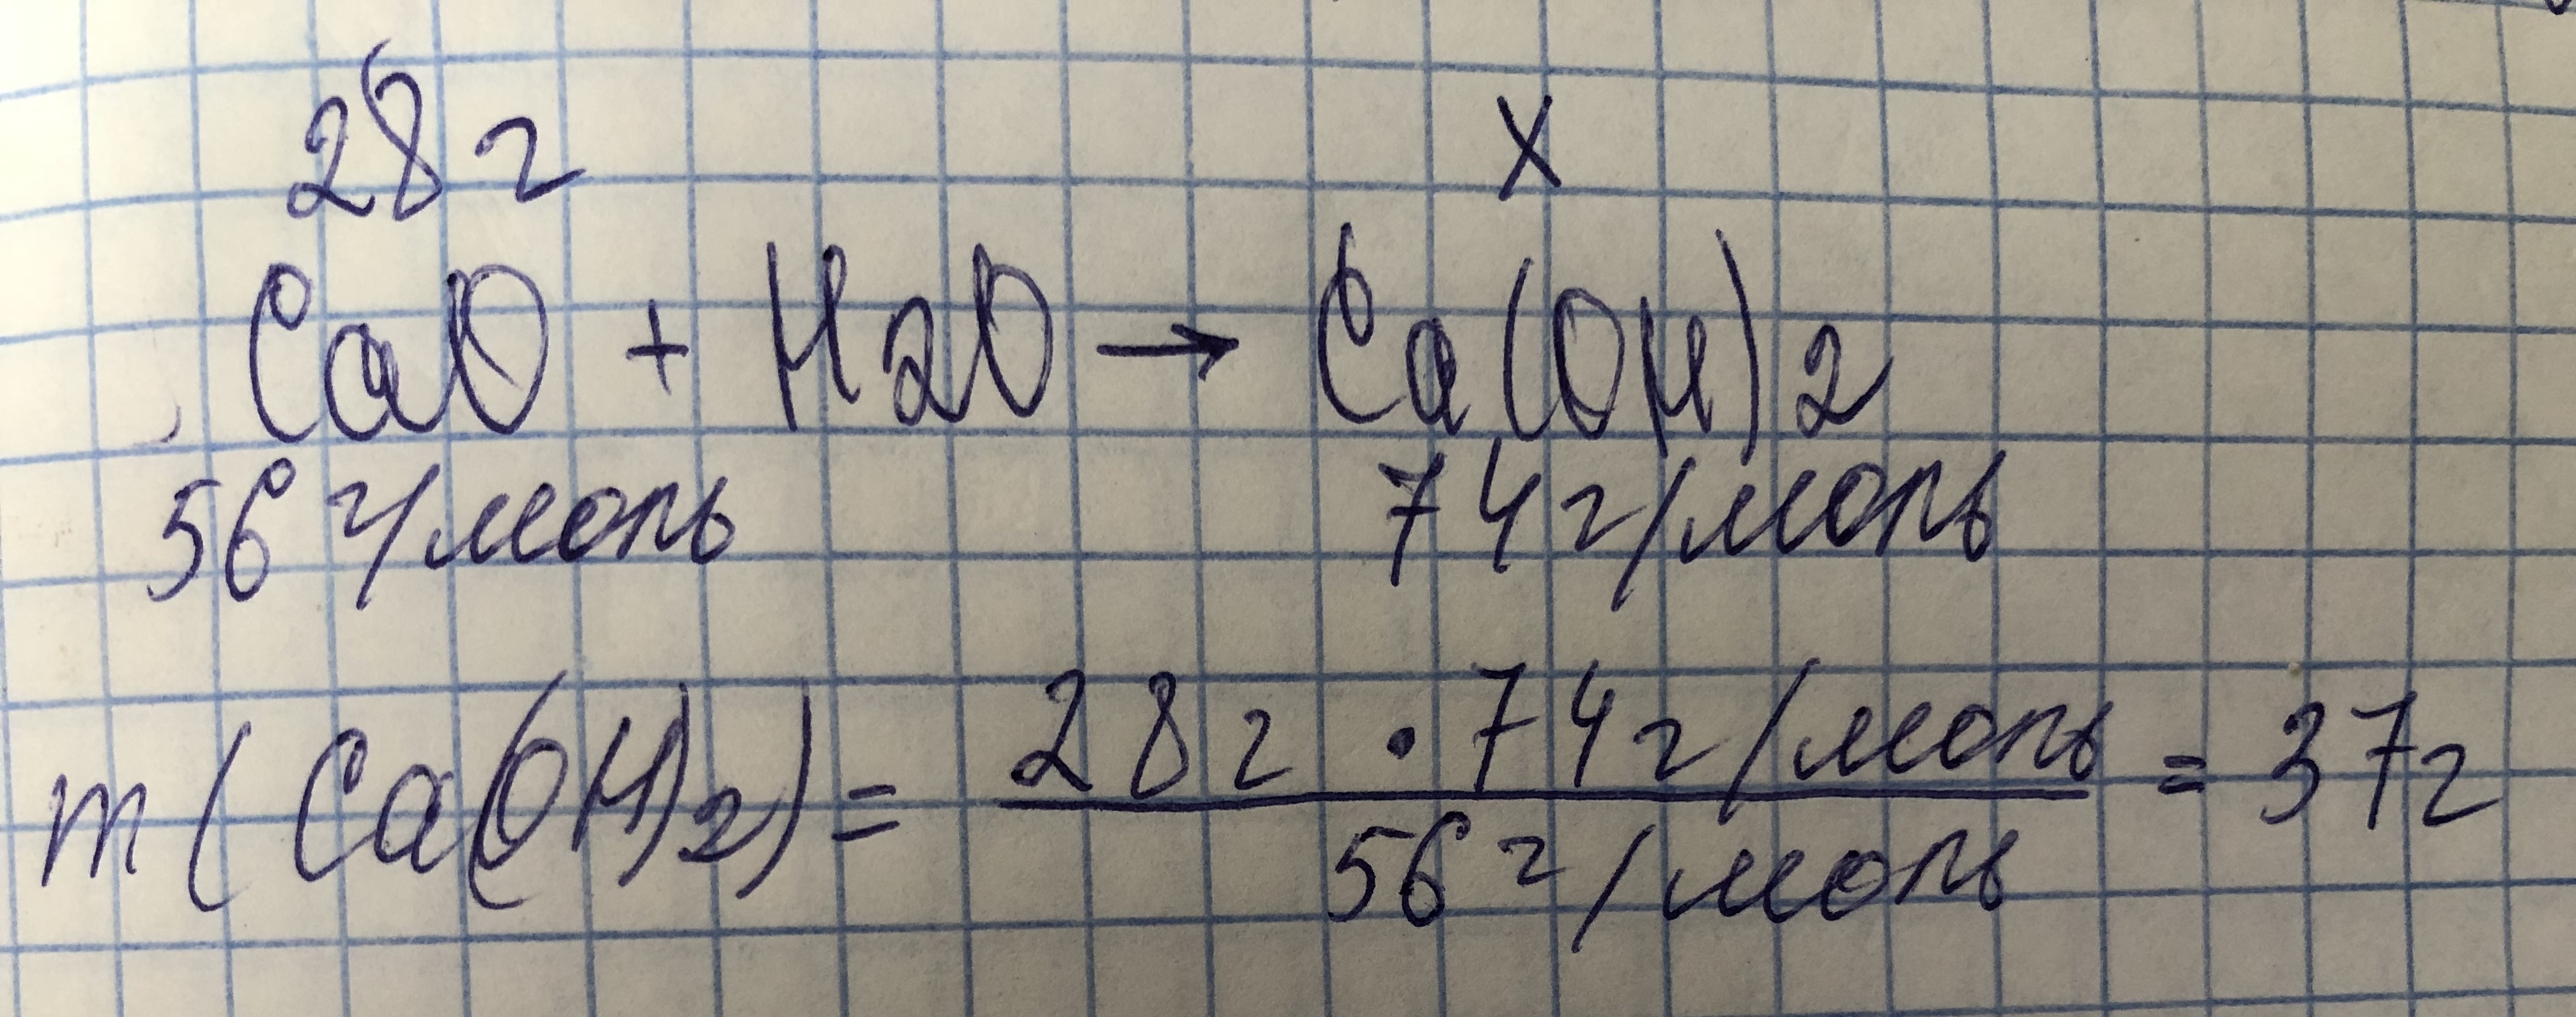 28г X
CaO + H2O → Ca(OH)2
56 г/моль 74г/моль
m(Ca(OH)2) = 28г · 74г/моль = 37г
56г/моль